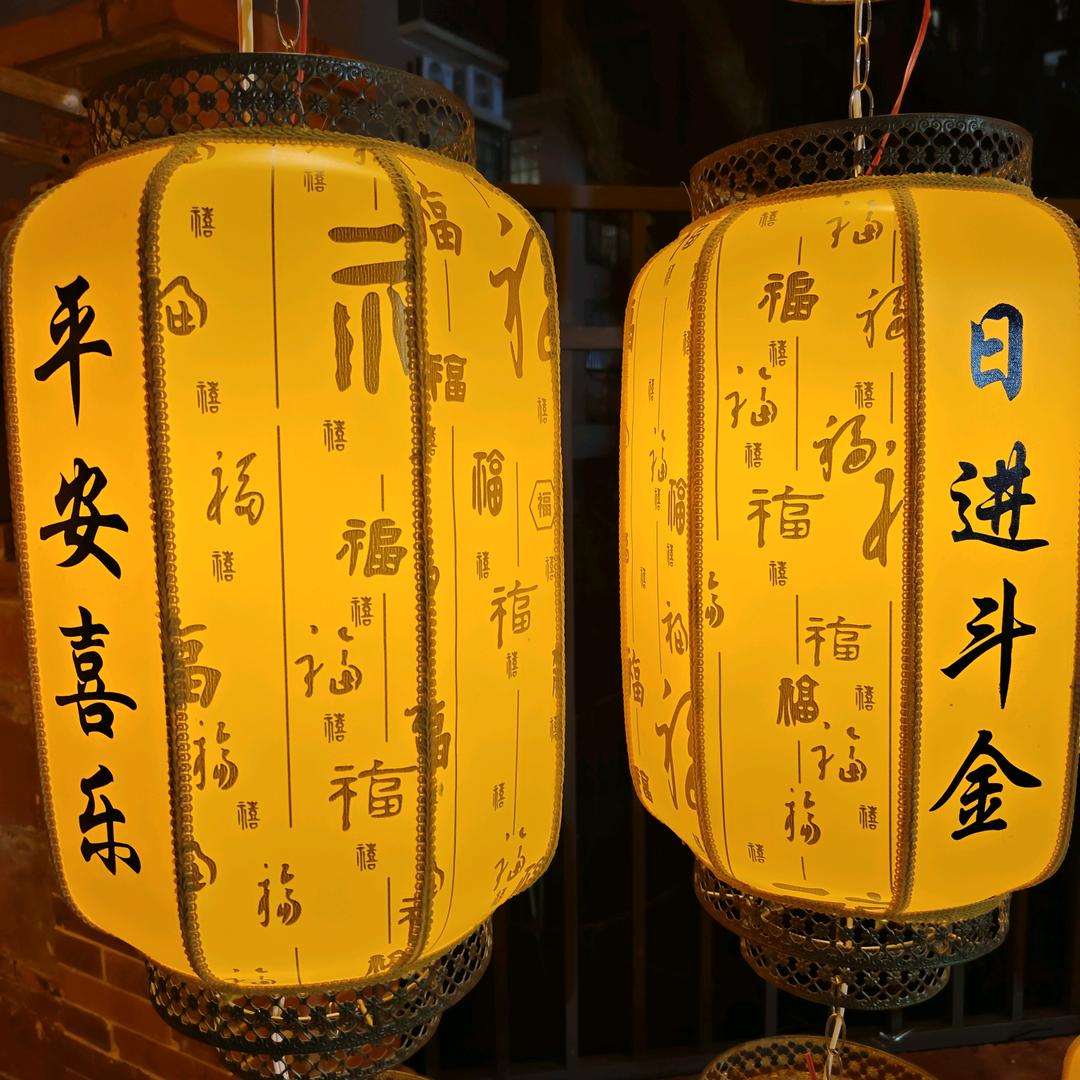 平安喜乐
日进斗金
福
禧